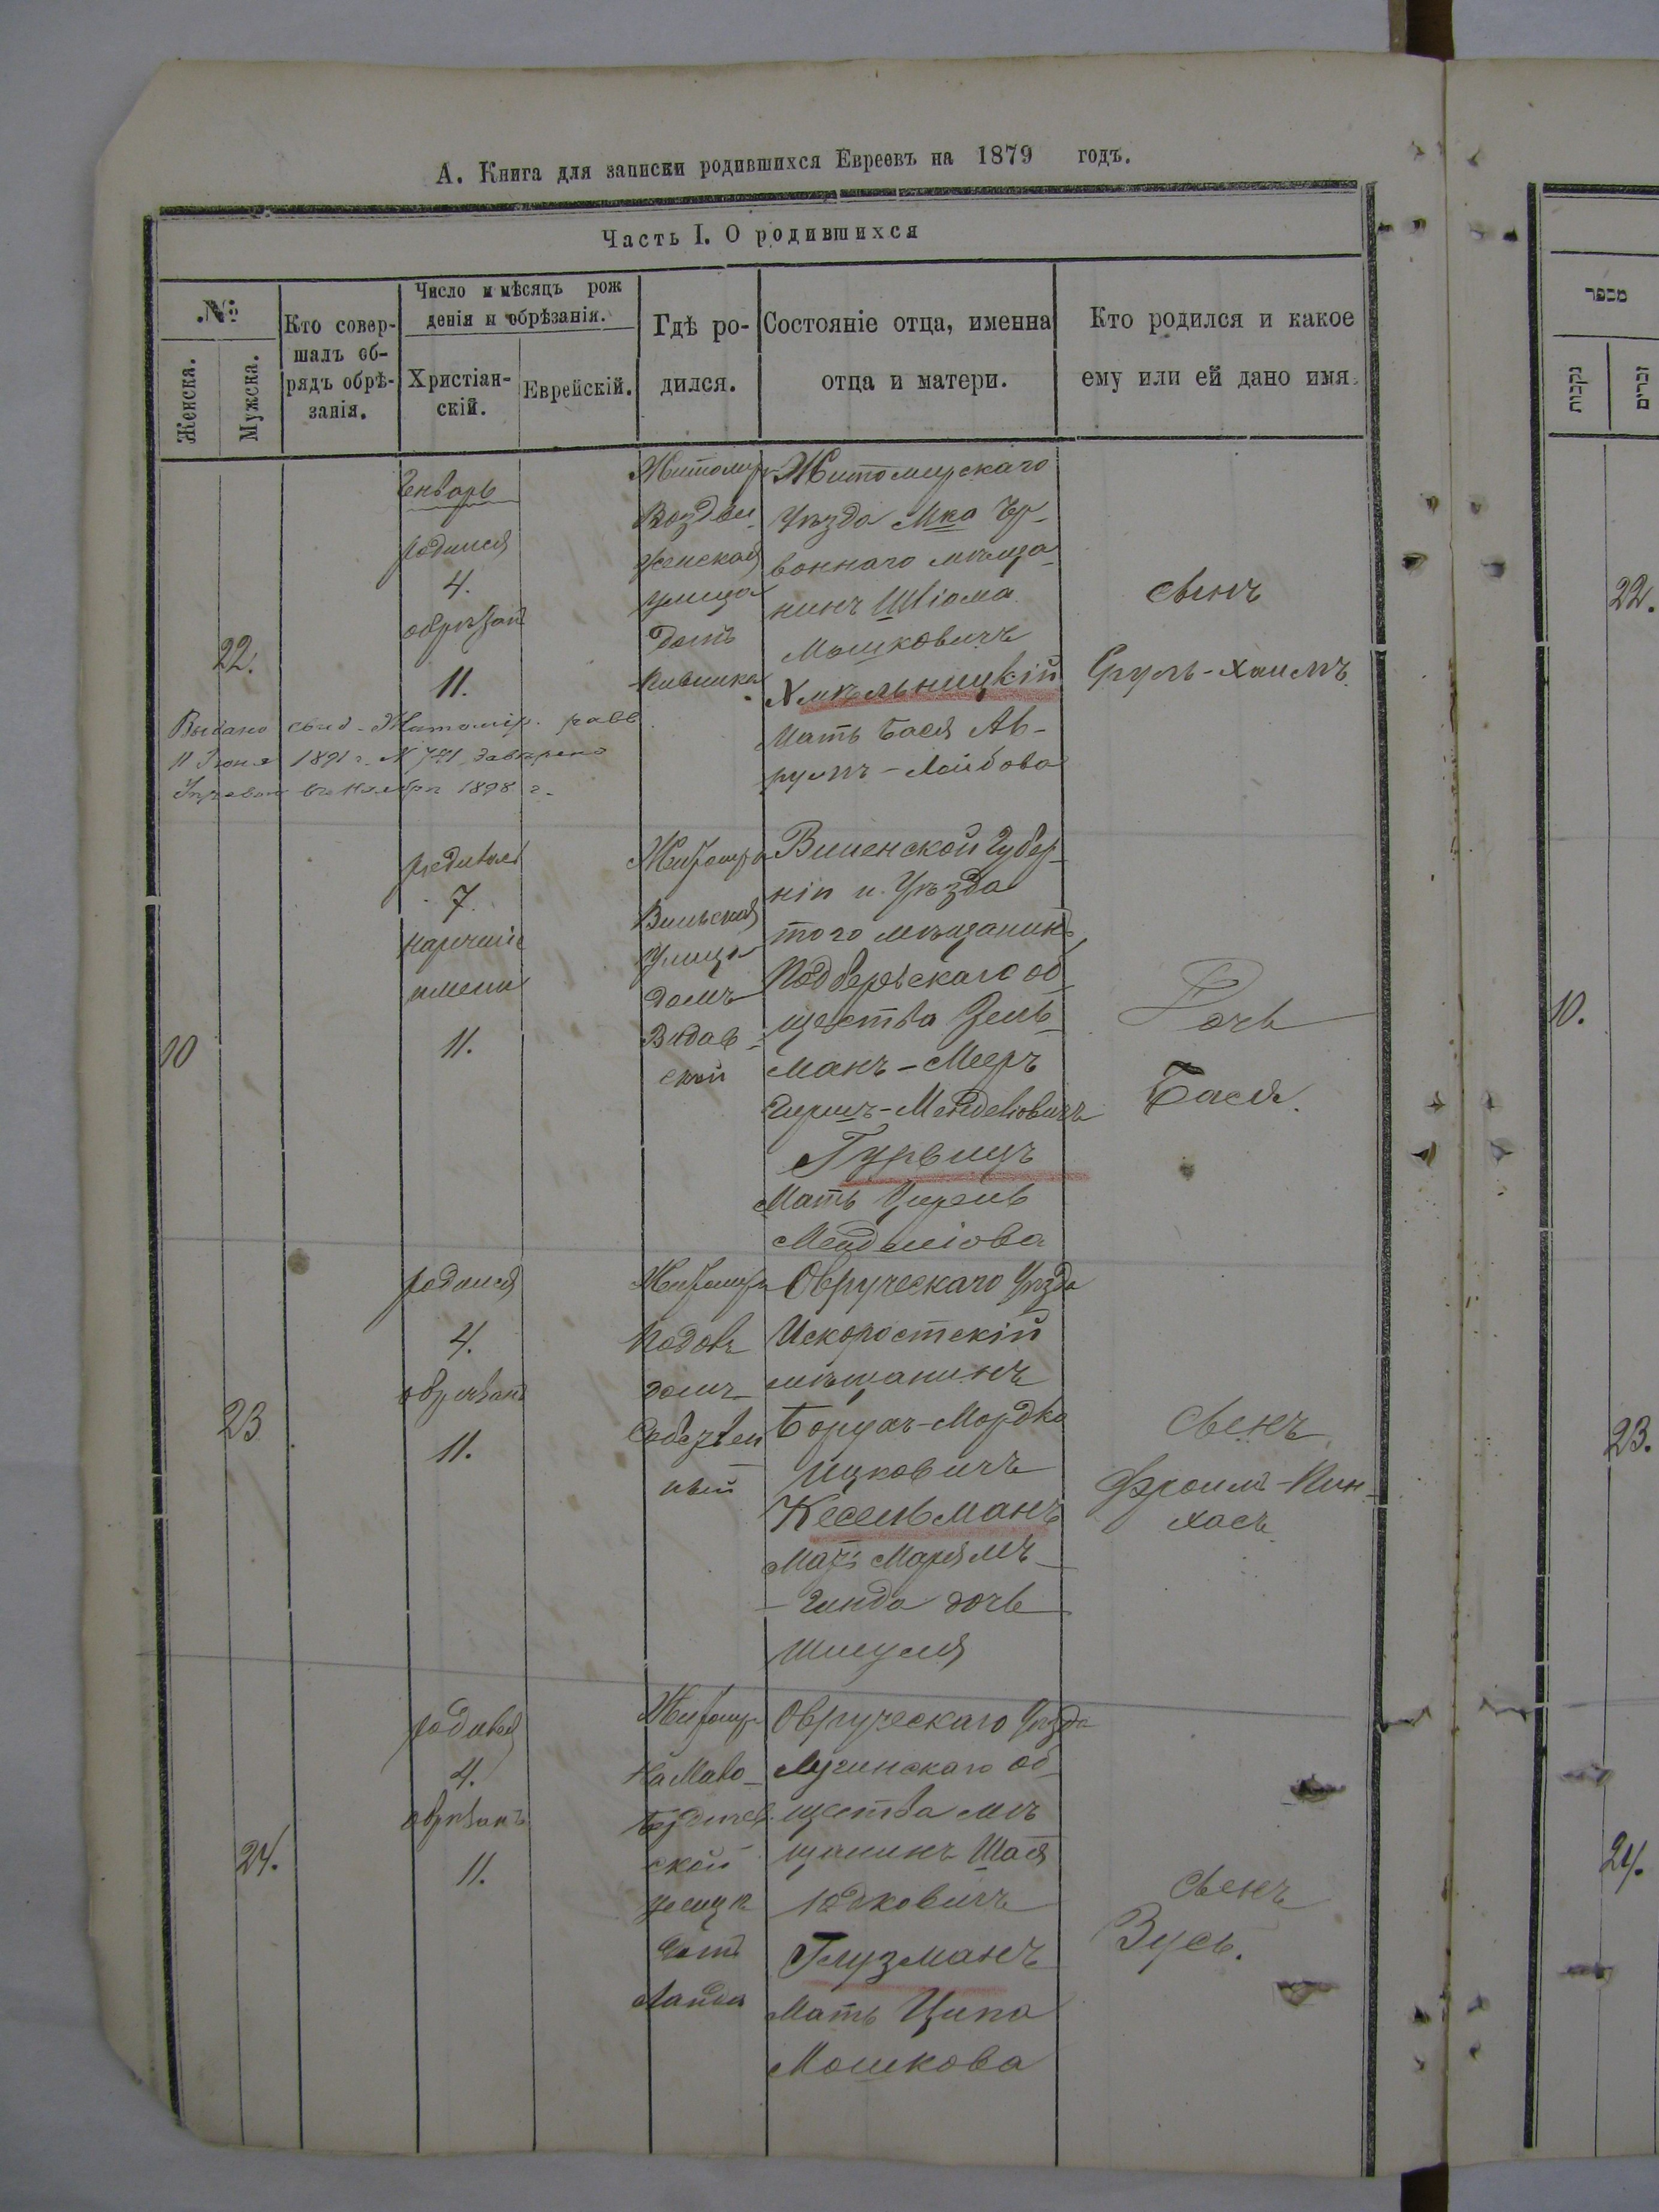 А. Книга для записки родившихся Евреевъ на 1879 годъ.
Часть I. О родившихся
№
Женска.
Мужска.
Кто совер-
шалъ об-
рядъ обрѣ-
занія.
Число и мѣсяцъ рож
денія и обрѣзанія.
Христіан-
скій.
Еврейскій.
Гдѣ ро-
дился.
Состояніе отца, именна
отца и матери.
Кто родился и какое
ему или ей дано имя.
22.
Январь
родился
4.
обрѣзанъ
11.
Житомиръ
Воздви-
женская
улица
домъ
Житомирскаго
Уѣзда Мка Чер-
воннаго мѣща-
нинъ Шліома
Мошковичъ
Хмѣльницкій
Мать Бася Ав-
румъ-Лейбова
сынъ
Сруль-Хаимъ
Выдано свид. Житомір. равв.
11 Іюня 1891 г. №
1898 г.
10
родилась
7.
нареченіе
имени
11.
Житомиръ
Вильская
Улица
домъ
Виленской Губер-
ніи и Уѣзда
того мѣщанинъ
Подберезскаго об-
щества Зель-
манъ-Мееръ
Гиршъ-Менделіовичъ
Гурвицъ
Мать Цирель
Менделіова
Дочь
Бася.
23
родился
4.
обрѣзанъ
11.
Житомиръ
домъ
Собствен
ный
Овруческаго Уѣзда
Искоростскій
мѣщанинъ
Борухъ-Мордко
Ицковичъ
Кесельманъ
Мать Маріямъ-
-Гинда дочь
Шмуля
Сынъ
Фроимъ-Пин-
хасъ
24.
родился
4.
обрѣзанъ
11.
Житомир
На Мало-
Бердичев-
ской
улицѣ
домъ
Ланда
Овруческаго Уѣзда
Лугинскаго об-
щества мѣ
щанинъ Шая
Юдковичъ
Глузманъ
Мать Ципа
Мошкова
Сынъ
Зусь.
מספר
נקבות
זכרים
22.
10.
23.
24.